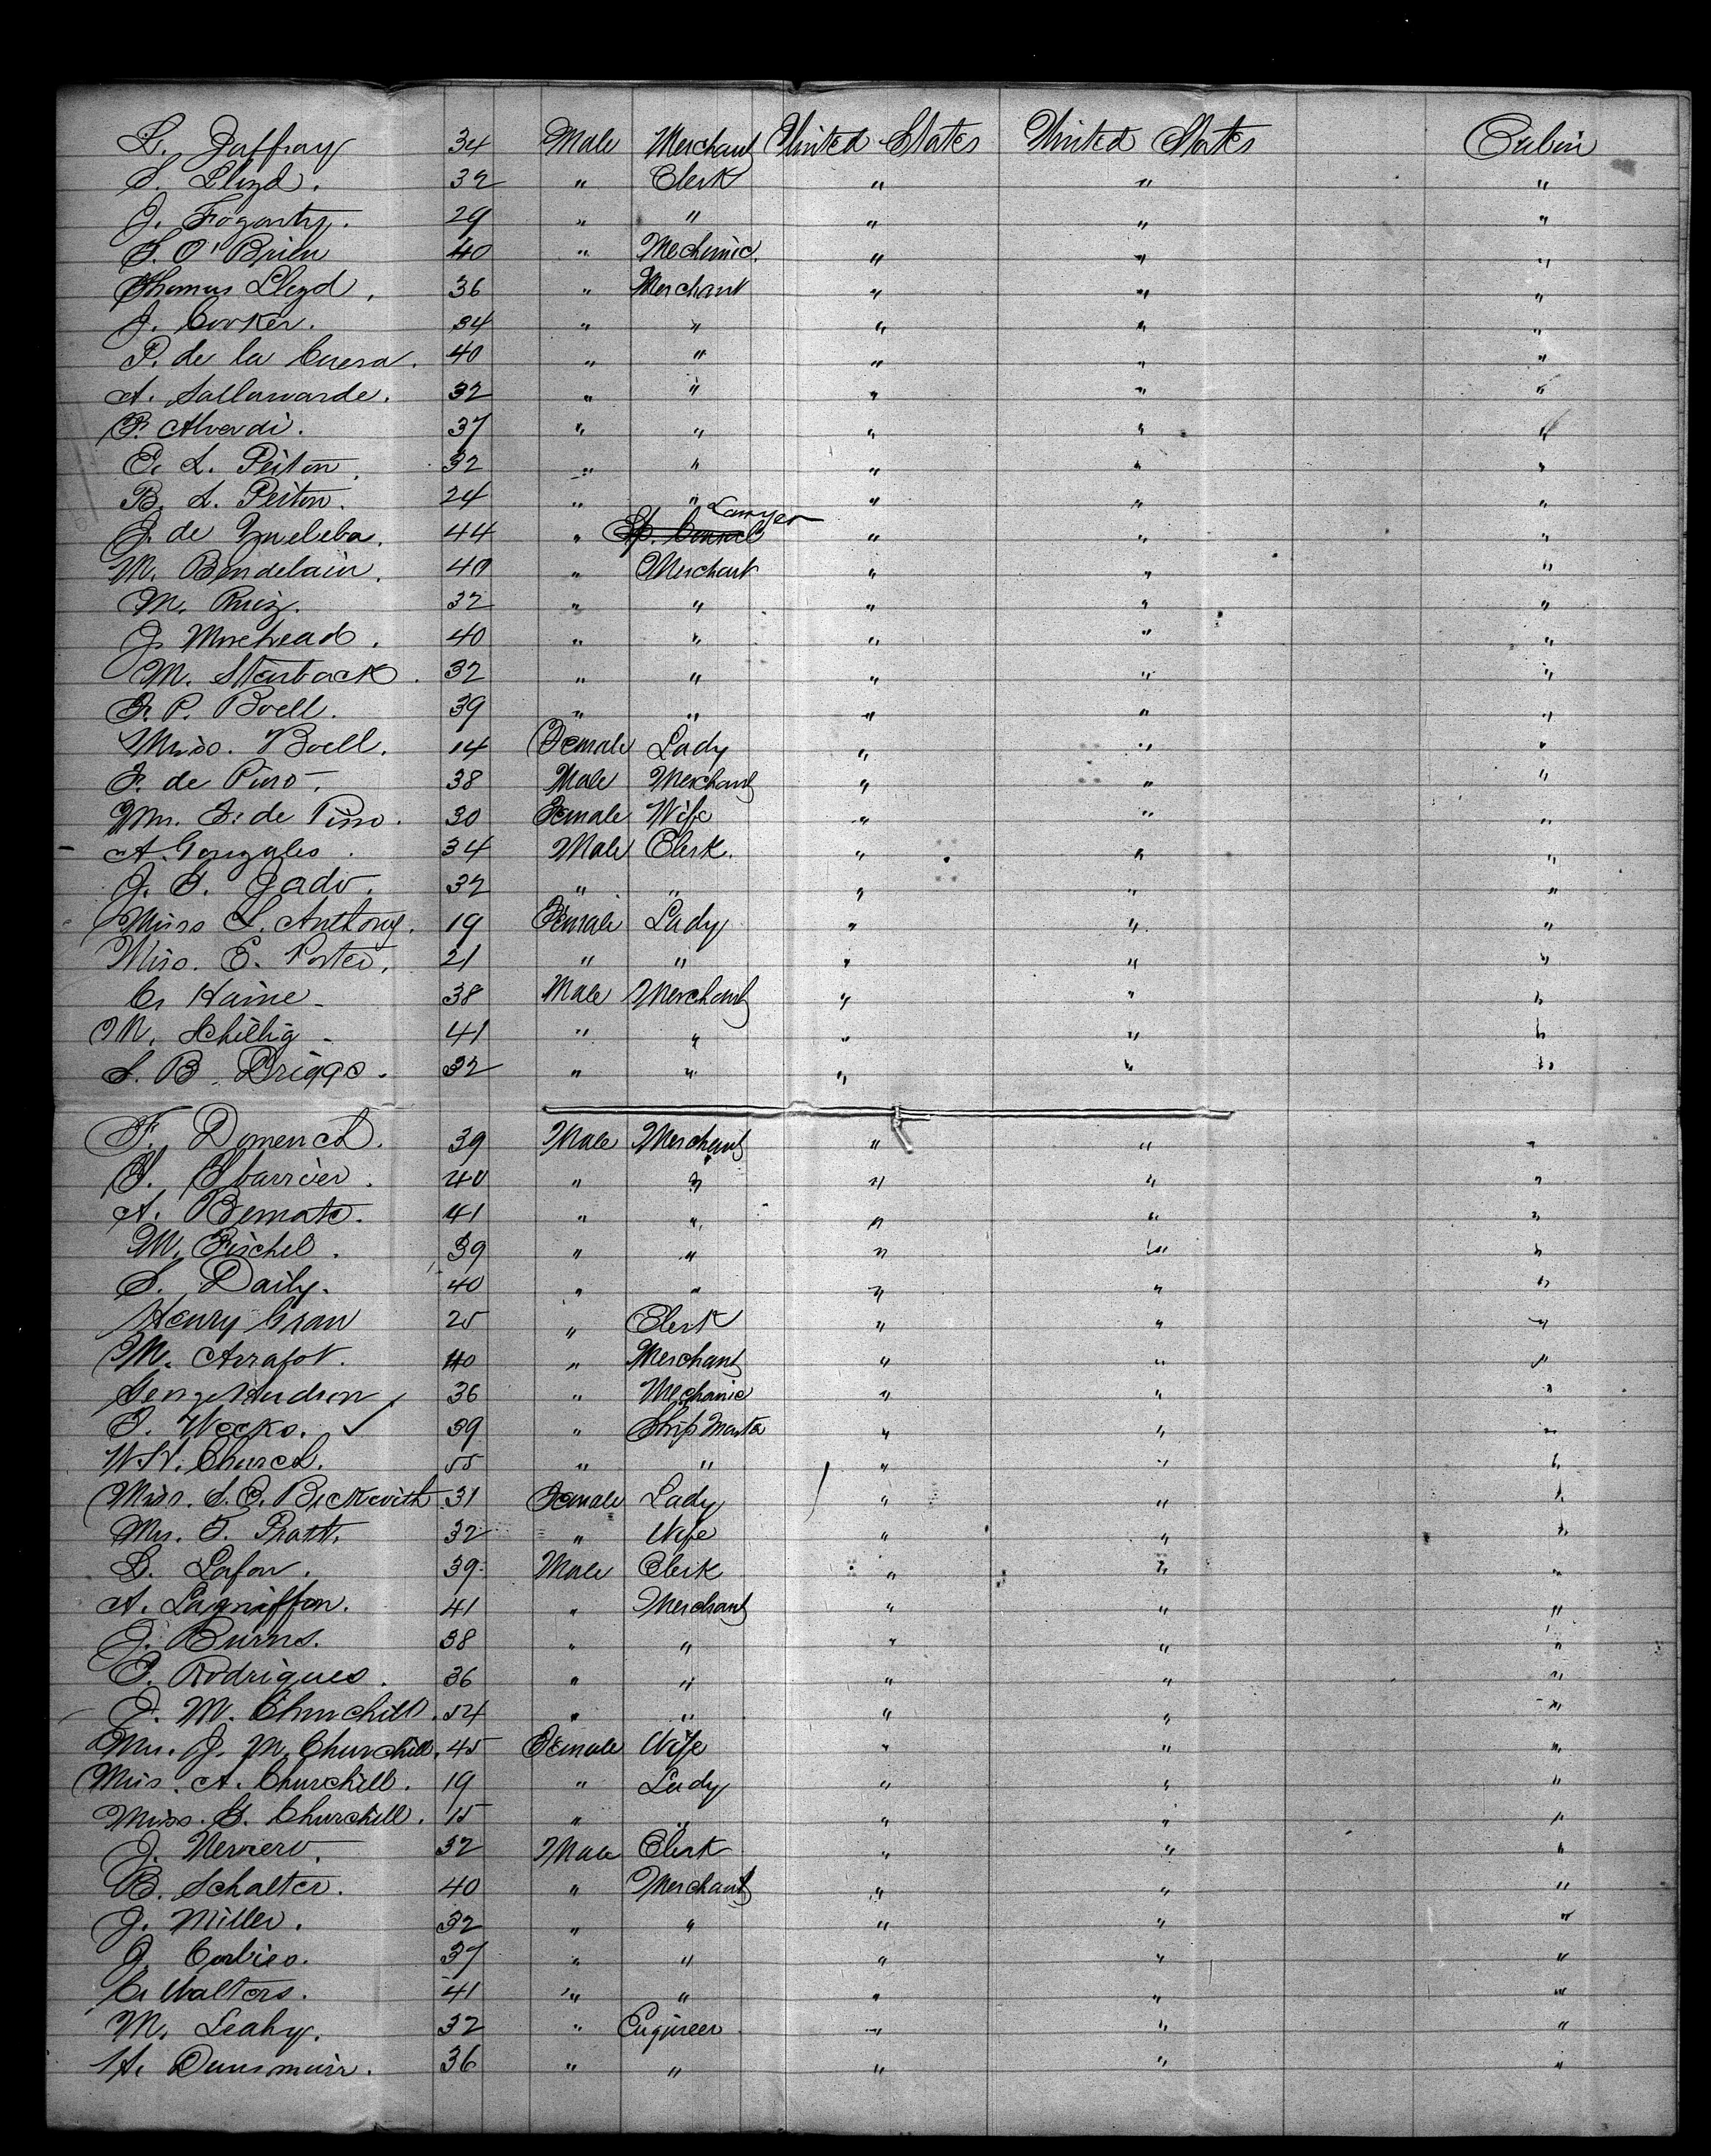 L. Jaffray 34 Male Merchant United States United States Cabin
S. Lloyd. 32 " Clerk " " "
J. Fogarty. 29 " " " " "
S. O'Brien 40 " Mechanic. " " "
Thomas Lloyd, 36 " Merchant " " "
J. Cooker. 34 " " " " "
P. de la Cuesa. 40 " " " " "
A. Sallawarde. 32 " " " " "
F. Alverdi. 37 " " " " "
E. L. Peiton. 32 " " " " "
B. L. Peiton. 24 " " " " "
Lawyer
J. de 44 " " " "
M. Bendelain. 40 " Merchant " " "
M. Ruiz. 32 " " " " "
J. Morehead. 40 " " " " "
M. Starback. 32 " " " " "
F. P. Boell. 39 " " " " "
Miss. Boell. 14 Female Lady " " "
F. de Pino. 38 Male Merchant " " "
Mrs. F. de Pino. 30 Female Wife " " "
A. Gonzales. 34 Male Clerk. " " "
J. G. Jado. 32 " " " " "
Miss L. Anthony. 19 Female Lady " " "
Miss. E. Porter. 21 " " " " "
C. Haine 38 Male Merchant " " "
M. Schillig 41 " " " " "
S. B. Briggs. 32 " " " " "
F. Domench. 39 Male Merchant " " "
Y. Ybarrier. 40 " " " " "
A. Bemate. 41 " " " " "
M. Fischel. 39 " " " " "
S. Daily. 40 " " " " "
Henry Gran 25 " Clerk " " "
M. Arrafot. 40 " Merchant " " "
George Hudson, 36 " Mechanic " " "
T. Weeks. ✓ 39 " Ship Master " " "
W. H. Church. 55 " " " " "
Miss. S. E. Beckwith 31 Female Lady " " "
Mrs. T. Pratt. 32 " Wife " " "
D. Lafon. 39 Male Clerk " " "
A. Lagniffon. 41 " Merchant " " "
J. Burns. 38 " " " " "
E. Rodrigues. 36 " " " " "
J. M. Churchill. 54 " " " " "
Mrs. J. M. Churchill. 45 Female Wife " " "
Miss. A. Churchill. 19 " Lady " " "
Miss. G. Churchill. 15 " " " " "
J. Nerviero. 32 Male Clerk " " "
B. Schalter. 40 " Merchant " " "
J. Miller. 32 " " " " "
J. Corbies. 37 " " " " "
C. Walters. 41 " " " " "
M. Leahy. 32 " Engineer " " "
A. Dunsmuir. 36 " " " " "